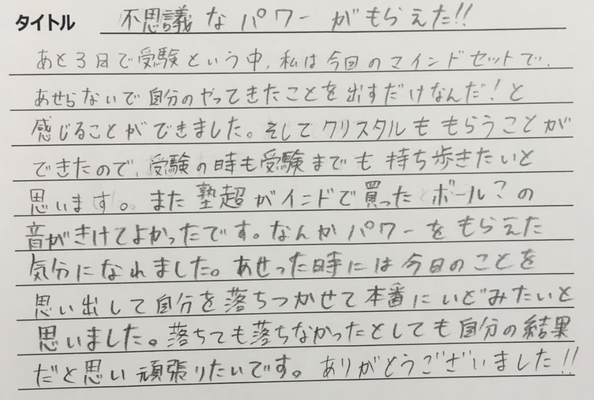 タイトル 不思議なパワーがもらえた!!
あと3日で受験という中、私は今回のマインドセットで、
あせらないで自分のやってきたことを出すだけなんだ!と
感じることができました。そしてクリスタルももらうことが
できたので、受験の時も受験までも持ち歩きたいと
思います。また塾超がインドで買ったボール?の
音がきけてよかったです。なんかパワーをもらえた
気分になれました。あせった時には今日のことを
思い出して自分を落ちつかせて本番にいどみたいと
思いました。落ちても落ちなかったとしても自分の結果
だと思い頑張りたいです。ありがとうございました!!